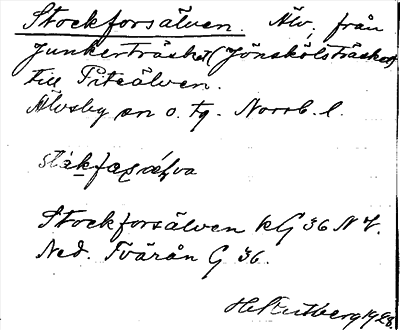 Stockforsälven. Älv, från
Junkerträsket (Jönsköisträsket)
till Piteälven.
Älvsby sn o. tg. Norrb. l.
Stockforsälven kG 36 N V.
Ned. Tvärån G 36.
1928.